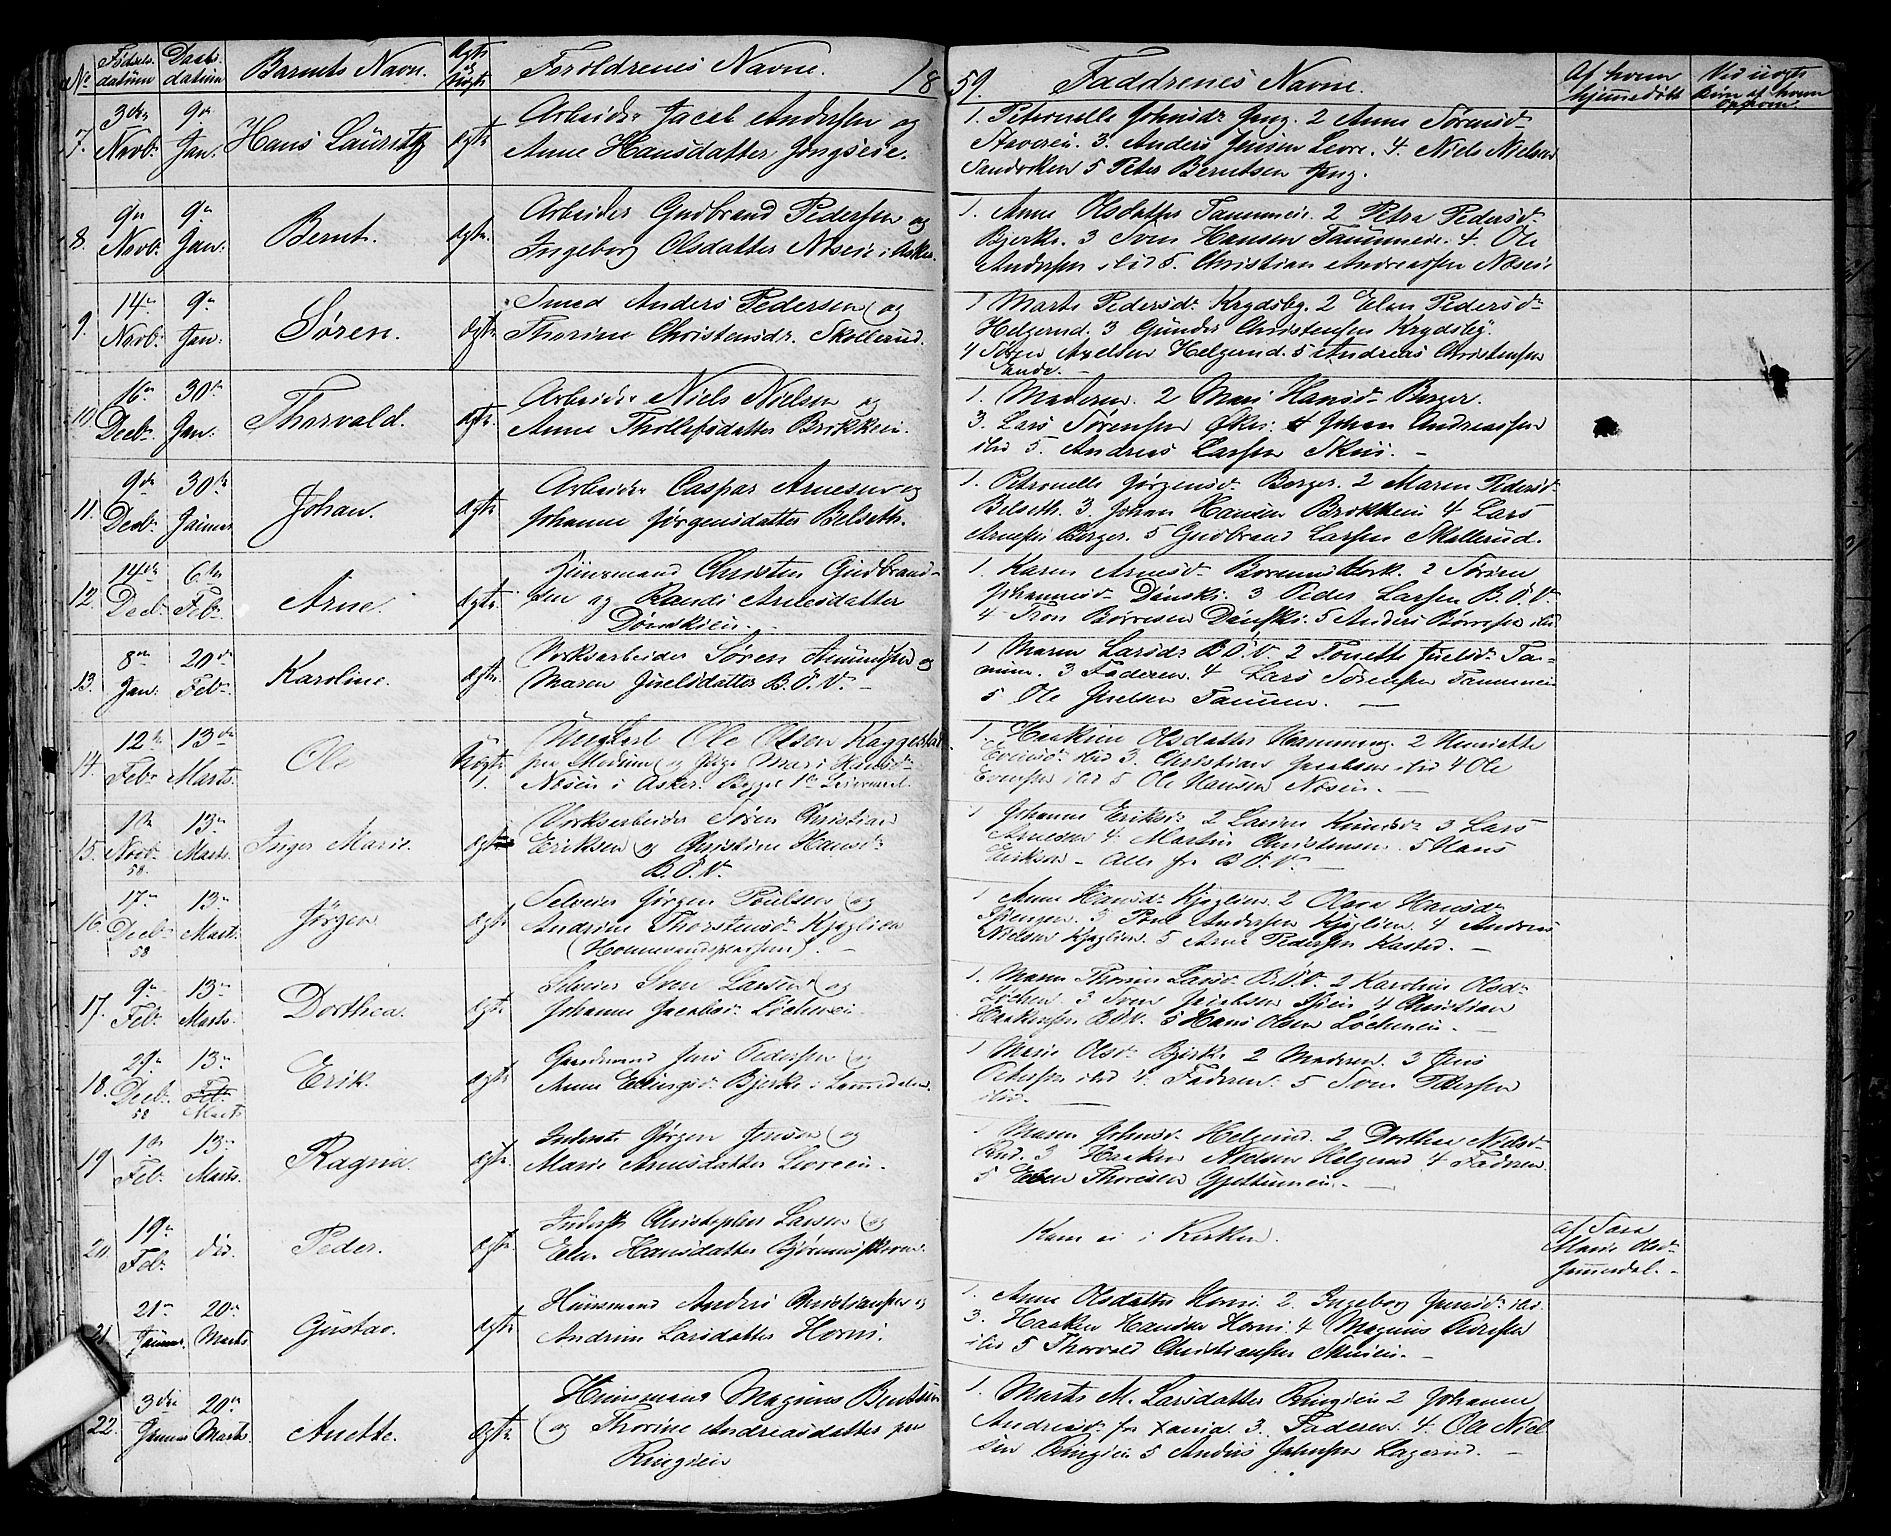 No Fødsels- datum Daabs- datum Barnets Navn. Ægte el. Uægte Forældrenes Navne. 18
59. Faddrenes Navne. Af hvem hjemmedøbt Ved uægte Børn af hvem
7. 3die Novb. 9de Jan. Hans Lauritz ægte Arbeider Jacob Andersen og
Anne Hansdatter
1. Petronelle Johnsdr 2 Anne Sørensdr
3. Anders Jensen Levre. 4. Niels Nielsen
Sandviken 5 Peter Berntsen
8. 9de Novb. 9de Jan. Bernt. ægte. Arbeider Gudbrand Pedersen og
Ingeborg Olsdatter Nøsei i Asker.
1. Anne Olsdatter Tanumei. 2 Petra Pedersdr
Bjerke. 3 Sven Hansen Tanumei. 4. Ole
Andersen ibid 5. Christian Andreassen Nøsei
9. 14de Novb. 9de Jan. Søren. ægte Smed Anders Pedersen og
Thorine Christensdr. Skollerud.
1 Marte Pedersdr Krydsby. 2 Elen Pedersdr
Helgerud. 3 Gunder Christensen Krydsby.
4 Søren Axelsen Helgerud. 5 Andreas Christensen
10. 16de Decb. 30te Jan. Thorvald. ægte. Arbeider Niels Nielsen og
Anne Tholefsdatter Brokkei.
1. Moderen. 2 Mari Hansdr Berger.
3. Lars Sørensen 4 Johan Andreassen
ibid 5. Andreas Larsen Skui. -
11. 9de Decb. 30te Januar Johan. ægte Arbeider Caspar Arnesen og
Johanne Jørgensdatter Belseth.
1. Petronelle Jørgensdr Berger. 2 Maren Pedersdr
Belseth. 3. Johan Hansen Brokkei 4 Lars
Arnesen Berger. 5 Gudbrand Larsen Skollerud.
12. 14de Decb. 6te Feb. Arne. ægte. Huusmand Christen Gudbrand-
sen og Randi Arnesdatter
Dønskiei.
1. Karen Arnesdr 2 Sørine
Johannesdr Dønski. 3 Peder Larsen B.O.V.
4 Tron Børresen Dønski. 5 Anders Børresen ibid
13. 8de Jan. 20de Feb. Karoline. ægte. Verksarbeider Søren Amundsen og
Maren Juelsdatter B.O.V. -
1 Maren Larsdr B.O.V. 2 Tonette Juelsdr Ta-
num. 3 Faderen. 4 Lars Sørensen Tanumei
5 Ole Juelsen Tanum. -
14. 12te Feb. 13de Marts. Ole Uægte 1. Ungkarl Ole Olsen Kaggestad
og Pige Mari Hansdr
Nøsei i Asker. Begges 1ste Leiermaal.
1. Olsdatter 2 Henriette
ibid 3. Christian Jacobsen ibid 4 Ole
ibid 5 Ole Hansen Nøsei. -
15. 1ste Novb. 58. 13de Marts. Inger Marie. ægte Verksarbeider Søren Christian
Eriksen og Christine Hansdr
B.O.V.
1 Johanne Eriksdr 2 Larine Knudsdr 3 Lars
Arnesen 4. Martin Christensen. 5 Hans
Eriksen - Alle fr B.O.V. -
16. 17de Decb. 58 13de Mart. Jørgen ægte Selveier Jørgen Poulsen og
Andrine Thorstensdr Kjaglien
1 Anne Hansdr Kjaglien. 2 Olava Hansdr
3 Poul Andersen Kjaglien. 4 Andreas
Nielsen Kjaglien. 5 Arne Pedersen Kasted. -
17. 9de Feb. 13de Marts. Dorthea. ægte Selveier Sven Larsen og
Johanne Jacobsdr Løchenei.
1. Maren Thorine Larsdr B.O.V. 2 Karoline Olsdr
Løchen. 3 Sven Jacobsen 4 Christian
Haakensen B.O.V. 5 Hans Olsen Løchenei. -
18. 29de Decb. 58 13de Feb. Mart. Erik. ægte Gaardmand Jens Pedersen og
Anne Bjerke i Lommedalen.
1 Marie Olsdr Bjerke 2 Moderen. 3 Jens
Petersen ibid 4. Faderen. 5 Sven Pedersen
ibid. -
19 1ste Feb. 13de Marts. Ragna. ægte. Inderst Jørgen Jonsen og
Marie Arnesdatter Levreei. -
1 Maren Johnsdr Helgerud. 2 Dorthea Nielsdr
Rud. 3 Haaken Nielsen Helgerud 4 Faderen
5 Thoresen Gjettumei. -
20. 19de Feb. død. Peder. ægte Inderst Christopher Larsen og
Elen Hansdatter
Kom ei i Kirken.
af Sara
Marie Olsdr
21. 21de Januar 20de Marts Gustav. ægte Huusmand Anders Christiansen og
Andrine Larsdatter Horni.
1. Anne Olsdatter Horni 2. Ingeborg Jensdr ibid.
3. Haaken Hansen Horni. 4 Magnus
ibid 5 Thorvald Christiansen Skuiei. -
22. 3die Januar 20de Marts. Anette. ægte. Huusmand Magnus Berntsen
og Thorine Andreasdatter paa
Ringiei
1. Marte M. Larsdatter Ringiei 2 Johanne
Andreasdr fra 3. Faderen. 4. Ole Niel-
sen Ringiei 5 Andreas Johnsen -